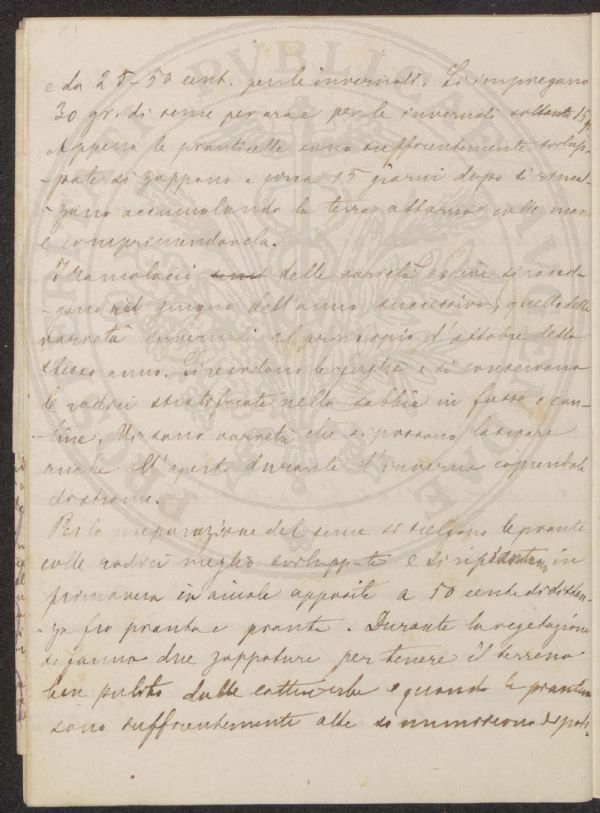 e da 25-50 cent. per le invernali. Si impregano
30 gr. di seme per ara e per le invernali soltanto 15 gr
Appena le pianticelle sono sufficientemente svilup-
-pate si zappano e circa 15 giorni dopo si rincal-
-zano accumulando la terra attorno colle mani
e comprimendovela.
I Ramolacci delle varietà estive si raccol-
-gono nel giugno dell'anno successivo, quelle delle
varietà invernali al principio d'ottobre dello
stesso anno. Si recidono le foglie e si conservano
le radici stratificate nella sabbia in fosse o can-
-tine. Vi sono varietà che si possono lasciare
anche all'aperto durante l'inverno coprendole
di strame.
Per la preparazione del seme si scelgono le piante
colle radici meglio sviluppate e si ripiantano in
primavera in aiuole apposite a 50 cent. di distan-
-za fra pianta e pianta. Durante la vegetazione
si fanno due zappature per tenere il terreno
ben pulito dalle cattive erbe e quando le piante
sono sufficientemente alte si muniscono di pali,
PVBLICAE